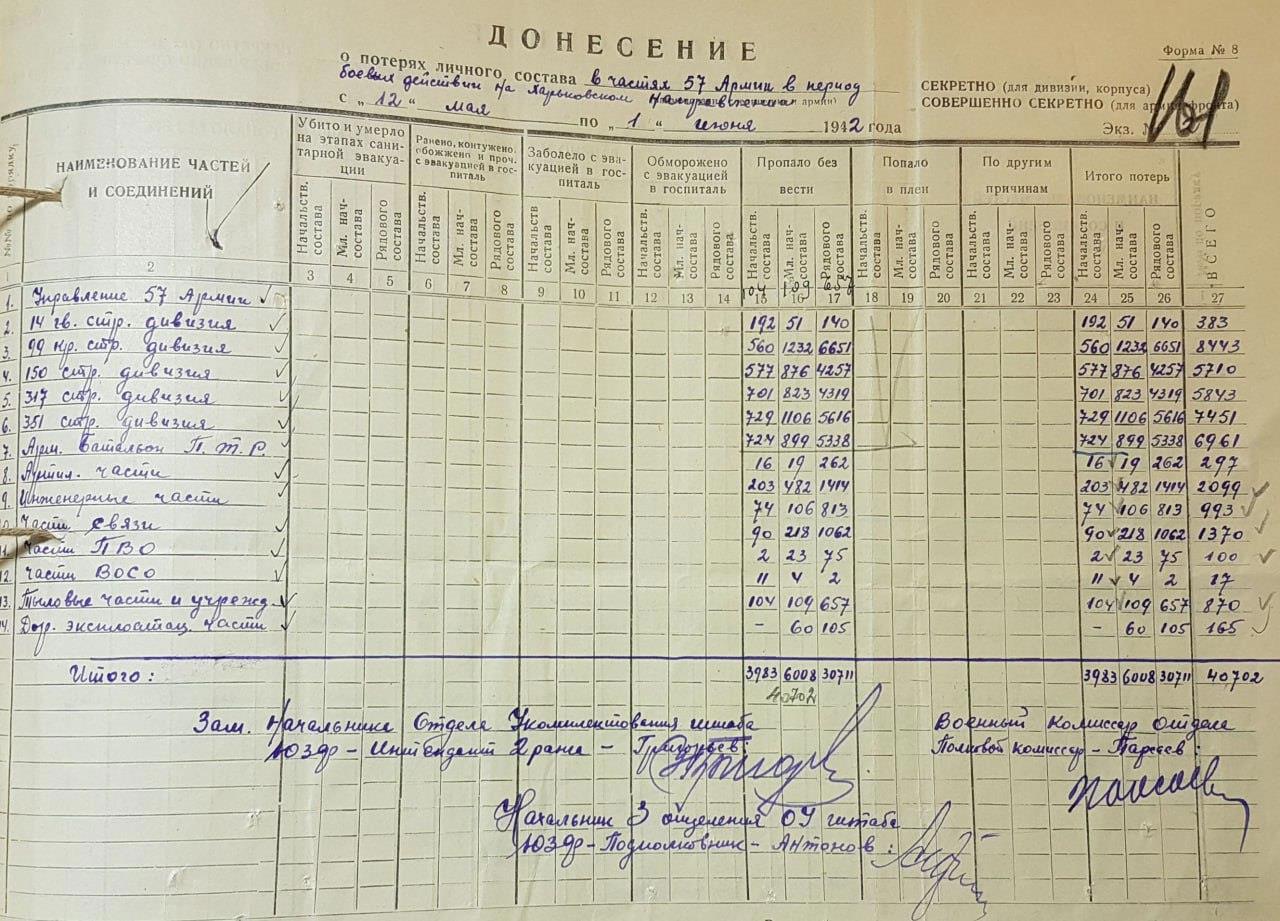 ДОНЕСЕНИЕ
Форма № 8
о потерях личного состава в частях 57 Армии в период
боевых действий на Харьковском направлении
СЕКРЕТНО (для дивизии, корпуса)
СОВЕРШЕННО СЕКРЕТНО (для армии, фронта)
с „12“ мая по „1“ июня 1942 года
Экз. №
161
НАИМЕНОВАНИЕ ЧАСТЕЙ И СОЕДИНЕНИЙ
Убито и умерло на этапах санитарной эвакуации
Ранено, контужено, обожжено и проч. с эвакуацией в госпиталь
Заболело с эвакуацией в госпиталь
Обморожено с эвакуацией в госпиталь
Пропало без вести
Попало в плен
По другим причинам
Итого потерь
ВСЕГО
Начальств. состава Мл. нач-состава Рядового состава Начальств. состава Мл. нач-состава Рядового состава Начальств состава Мл. нач-состава Рядового состава Начальств. состава Мл. нач-состава Рядового состава Начальств. состава Мл. нач-состава Рядового состава Начальств. состава Мл. нач-состава Рядового состава Начальств. состава Мл. нач-состава Рядового состава Начальств. состава Мл. нач-состава Рядового состава
104 109 657
1 2 3 4 5 6 7 8 9 10 11 12 13 14 15 16 17 18 19 20 21 22 23 24 25 26 27
1. Управление 57 Армии 192 51 140 192 51 140 383
2. 14 гв. стр. дивизия 560 1232 6651 560 1232 6651 8443
3. 99 кр. стр. дивизия 577 876 4257 577 876 4257 5710
4. 150 стр. дивизия 701 823 4319 701 823 4319 5843
5. 317 стр. дивизия 729 1106 5616 729 1106 5616 7451
6. 351 стр. дивизия 724 899 5338 724 899 5338 6961
7. Арм. батальон П.Т.Р. 16 19 262 16 19 262 297
8. Артил. части 203 482 1414 203 482 1414 2099
9. Инженерные части 74 106 813 74 106 813 993
10. Части связи 90 218 1062 90 218 1062 1370
11. Части ПВО 2 23 75 2 23 75 100
12. Части ВОСО 11 4 2 11 4 2 17
13. Тыловые части и учрежд. 104 109 657 104 109 657 870
14. Дор. эксплоатац. части - 60 105 - 60 105 165
Итого: 3983 6008 30711 3983 6008 30711 40702
40702
Зам. Начальника Отдела Укомплектования штаба
ЮЗФр - Интендант 2 ранга - Григорьев:
Военный Комиссар отдела
Полковой комиссар -
Начальник 3 отделения ОУ штаба
ЮЗФр - Подполковник - Антонов: